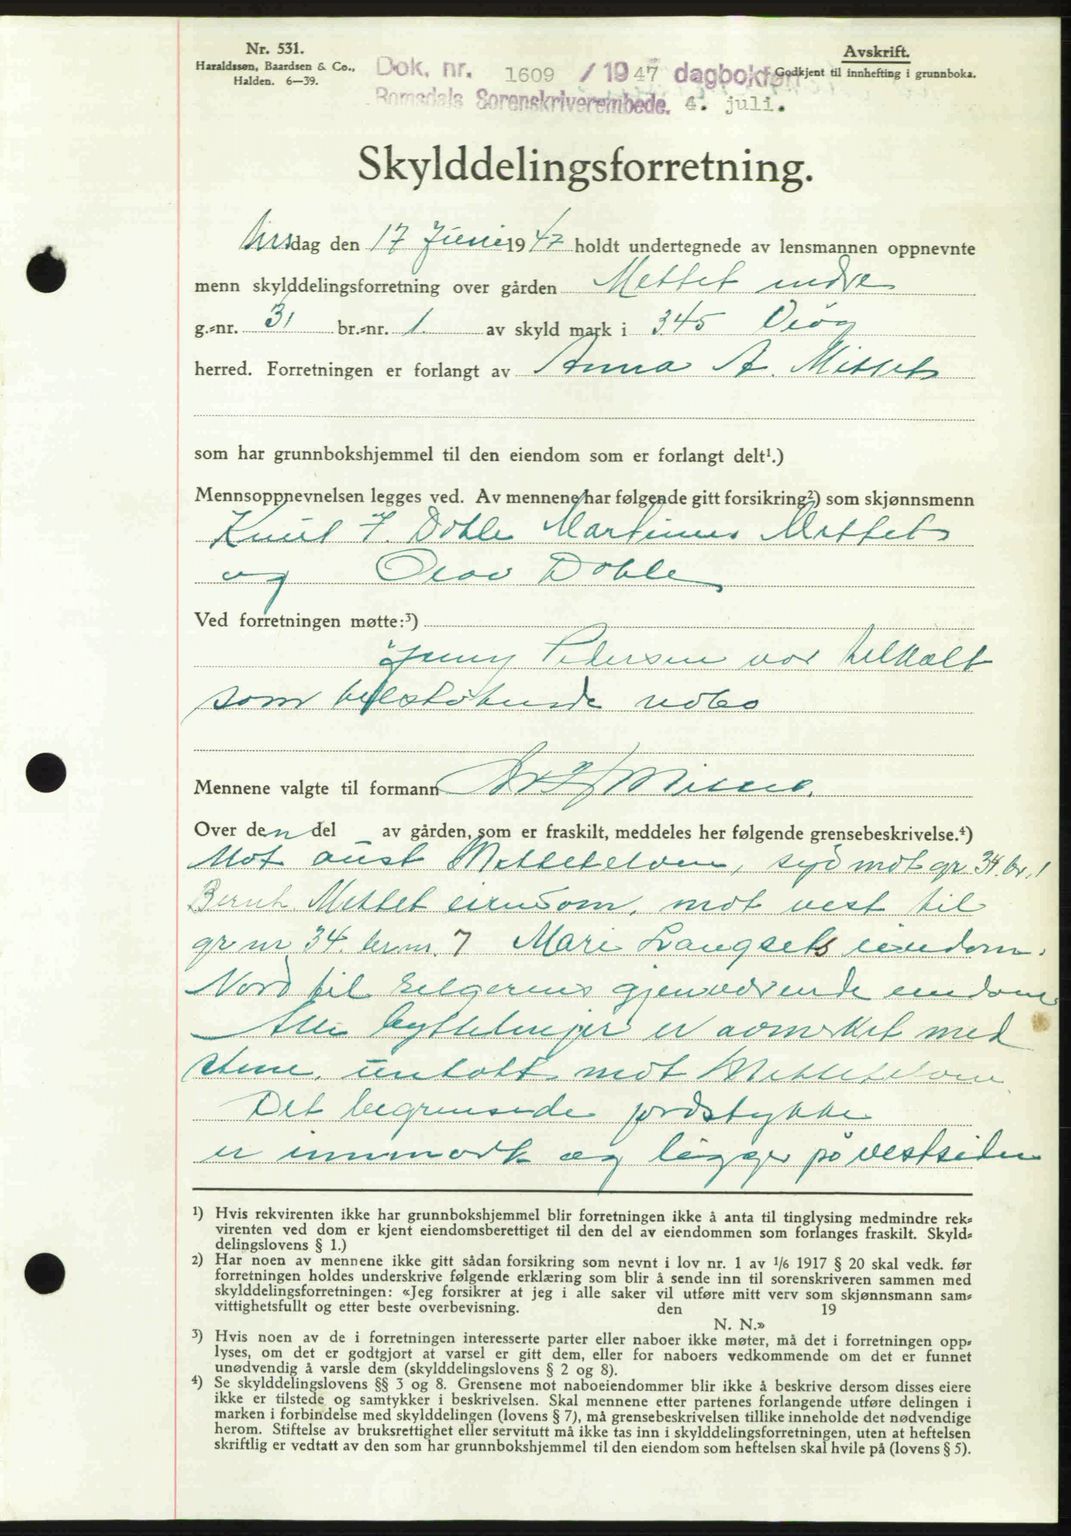 Nr. 531.
Haraldssen, Baardsen & Co.,
Halden. 6—39.
Avskrift.
Godkjent til innhefting i grunnboka.
Dok. nr. 1609 / 1947 dagbokført
Romsdals Sorenskriverembede. 4. juli.
Skylddelingsforretning.
Tirsdag den 17 Juni 1947 holdt undertegnede av lensmannen oppnevnte
menn skylddelingsforretning over gården Mettet indre
g.-nr. 31 br.-nr. 1. av skyld mark i 345 Veøy
herred. Forretningen er forlangt av Anna A. Mittet
som har grunnbokshjemmel til den eiendom som er forlangt delt¹.)
Mennsoppnevnelsen legges ved. Av mennene har følgende gitt forsikring²) som skjønnsmenn
Knut F. Dohle Martinus Mittet
og Olav Dohle
Ved forretningen møtte:³)
Jenny Pedersen var tilkalt
som tilstøtende nabo
Mennene valgte til formann
Over den del av gården, som er fraskilt, meddeles her følgende grensebeskrivelse.⁴)
Mot aust Mettetelven, syd mot gr. 34. br. 1
Bernt Mettet eiendom, mot vest til
gr nr 34. br.nr. 7 Mari Langsets eiendom.
Nord til selgerens gjenværende eiendom
Alle byttelinjer er avmerket med
stene, untatt mot Mettetelven.
Det begrensede jordstykke
er innmark og ligger på vestsiden
¹) Hvis rekvirenten ikke har grunnbokshjemmel blir forretningen ikke å anta til tinglysing medmindre rek-
virenten ved dom er kjent eiendomsberettiget til den del av eiendommen som forlanges fraskilt. Skyld-
delingslovens § 1.)
²) Har noen av mennene ikke gitt sådan forsikring som nevnt i lov nr. 1 av ¹/₆ 1917 § 20 skal vedk. før
forretningen holdes underskrive følgende erklæring som blir å sende inn til sorenskriveren sammen med
skylddelingsforretningen: «Jeg forsikrer at jeg i alle saker vil utføre mitt verv som skjønnsmann sam-
vittighetsfullt og etter beste overbevisning. den 19
N. N.»
³) Hvis noen av de i forretningen interesserte parter eller naboer ikke møter, må det i forretningen opp-
lyses, om det er godtgjort at varsel er gitt dem, eller for naboers vedkommende om det er funnet
unødvendig å varsle dem (skylddelingslovens § 2 og 8).
⁴) Se skylddelingslovens §§ 3 og 8. Grensene mot naboeiendommer blir ikke å beskrive dersom disses eiere
ikke er tilstede og samtykker i beskrivelsen. Skal mennene etter partenes forlangende utføre delingen i
marken i forbindelse med skylddelingen (lovens § 7), må grensebeskrivelsen tillike inneholde det nødvendige
herom. Stiftelse av bruksrettighet eller servitutt må ikke tas inn i skylddelingsforretningen, uten at heftelsen
skriftlig er vedtatt av den som har grunnbokshjemmel til den eiendom som heftelsen skal hvile på (lovens § 5).